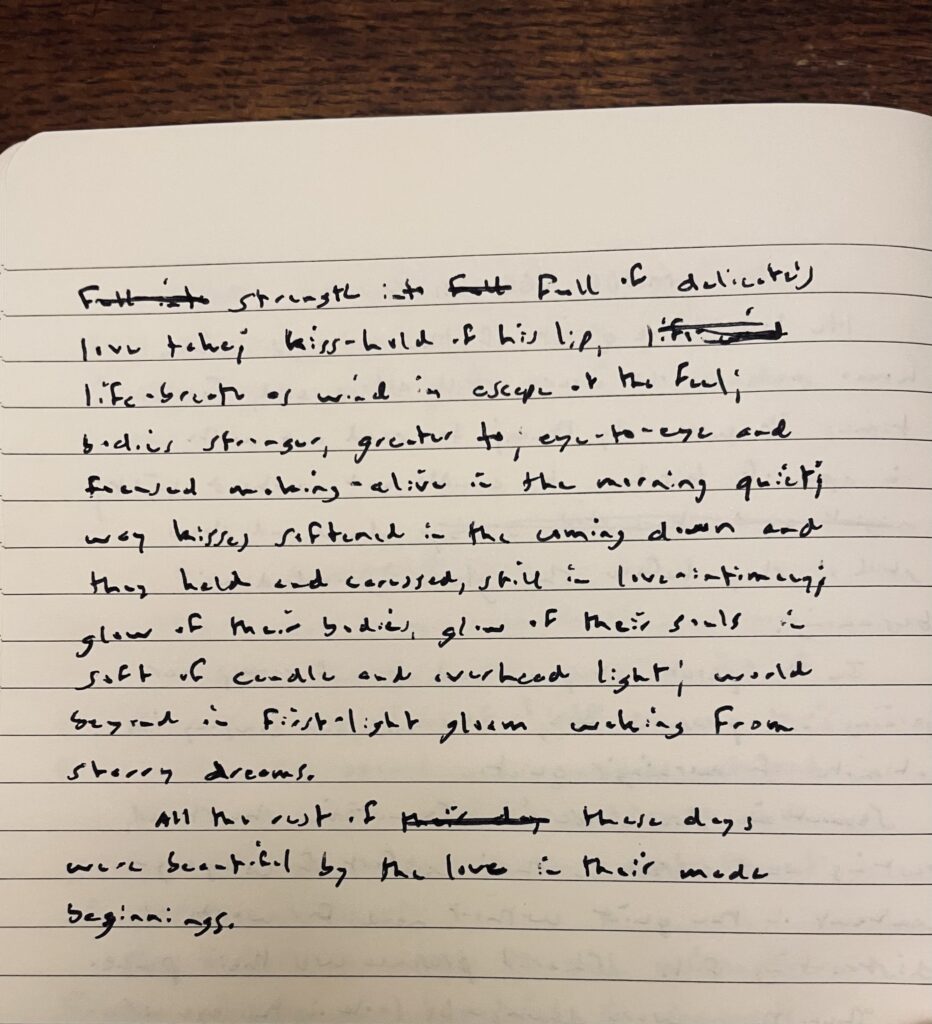 Full into strength into Full Full of delicately
love takes kiss-hold of his lip,
life-breath as wind in escape of the Feel;
bodies stronger, greater to, eye-to-eye and
focused making-alive in the morning quiet;
way kisses softened in the coming down and
they held and caressed, still in love-intimacy;
glow of their bodies, glow of their souls in
soft of candle and overhead light; world
beyond in First-light gleam waking From
starry dreams.
All the rest of their day these days
were beautiful by the love in their made
beginnings.